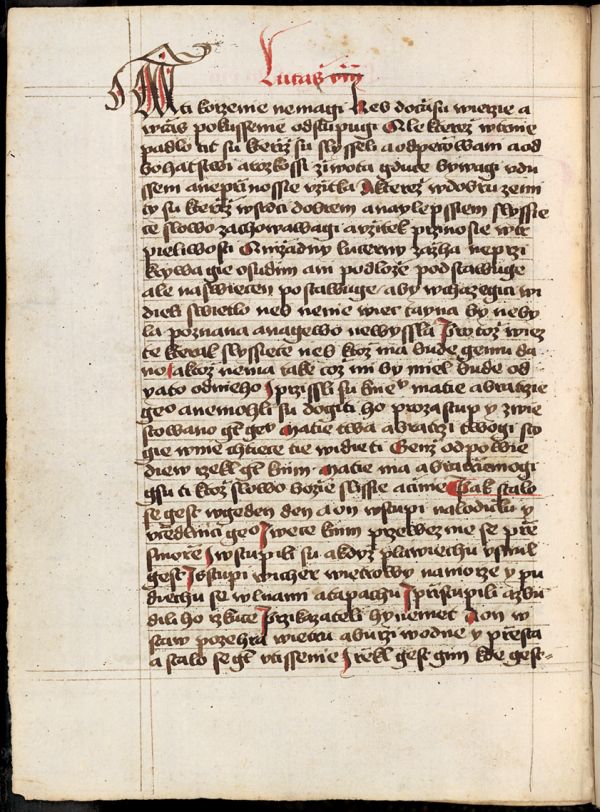 Lucas viii
A ti korzenie nemagi Nes dotczasu wierzie a
wczas pokussenie odstupugi Ale kterez wtrnie
padlo tit su kteriz su slysseli a odpeczowani a od
bohatstwi a rozkossi ziwota gduce bywagi vdu
sseni a neprinossie vzitka A kterez wdobru zemi
ty su kteriz wsrdci dobrem a naylepssiem slyssie
ce slowo zachowawagi a vzitek przinosie wtr
pieliwosti A nizadny lucerny zazha neprzi
krywa gie osudim ani podloze podstawuge
ale naswiecen postawuge aby wchazegici wi
dieli swietlo neb nenie wiec tayna by neby
la poznana a nagewo newyssla Protoz wiez
te kterak slyssiete neb ktoz ma bude gemu da
no A ktoz nema take coz mni by miel bude od
yato od nieho I przissli su knie° matie a bratrzie
ge° a nemohli su dogiti ho prozastup y zwie
stowano gt ge° Matie twa a bratrzi twogi sto
gie wnie chtiece tie widieti Genz odpowie
diew rzekl gt knim Matie ma a bratrziemogi
gsu ti ktoz slowo bozie slyssie a cinie Pak stalo
se gest wgeden den a on wstupi nalodicku y
vczedlnici ge° I wece knim przewezme se prze
smorze I wstupili su a kdyz plawiechu vsnul
gest I sstupi wicher wietrowy namorze y pu
diechu se wlnami a tapachu I pristupili a zbu
dili ho rzkuce Przikazateli hynemet A on w
staw pozehra wietru a burzi wodne y przesta
a stalo se gt vtissenie I rekl gest gim kde gest